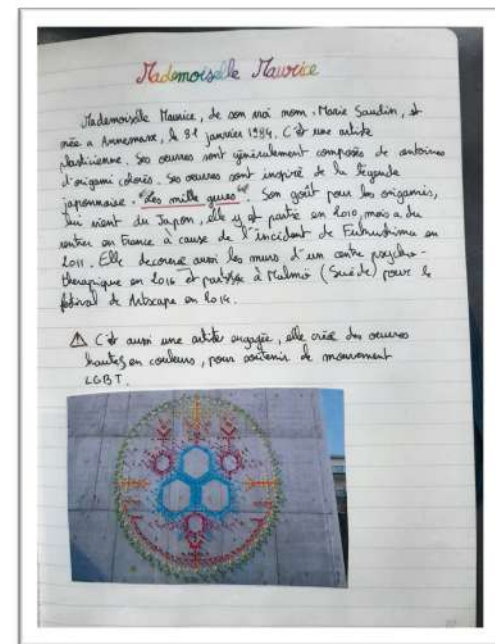 Mademoiselle Maurice
Mademoiselle Maurice, de son vrai nom Marie Saudin, est
née a Annemasse, le 31 janvier 1984. C'est une artiste
plasticienne. Ses œuvres sont généralement composés de
d'origami colorés. Ses œuvres sont inspiré de la légende
japonnaise. "Les mille grues". Son goût pour les origamis,
lui vient du Japon, elle y est partie en 2010, mais a du
rentrer en France à cause de l'incident de Fukushima en
2011. Elle decorera aussi les murs d'un centre psycho-
therapique en 2016 et participe à Malmö (Suède) pour le
festival de Artscape en 2014.
⚠ C'est aussi une artiste engagée, elle crée des œuvres
hautes en couleurs, pour soutenir de mouvement
LGBT.